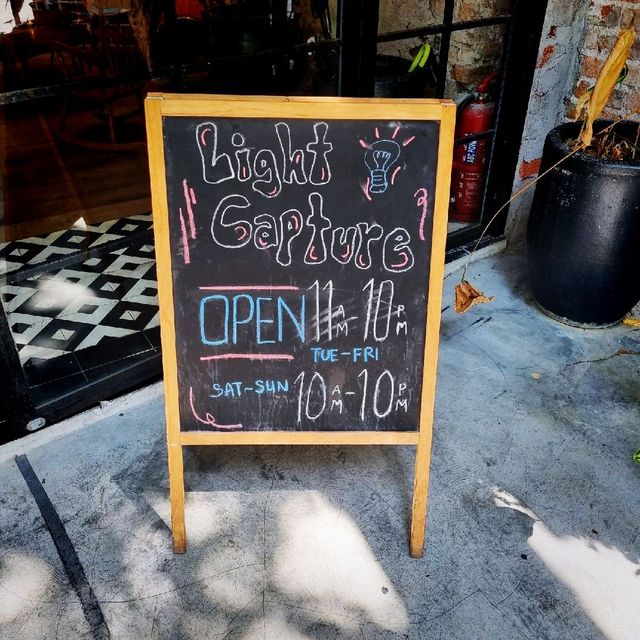 Light
Capture
OPEN 11AM-10PM
TUE-FRI
SAT-SUN 10AM-10PM